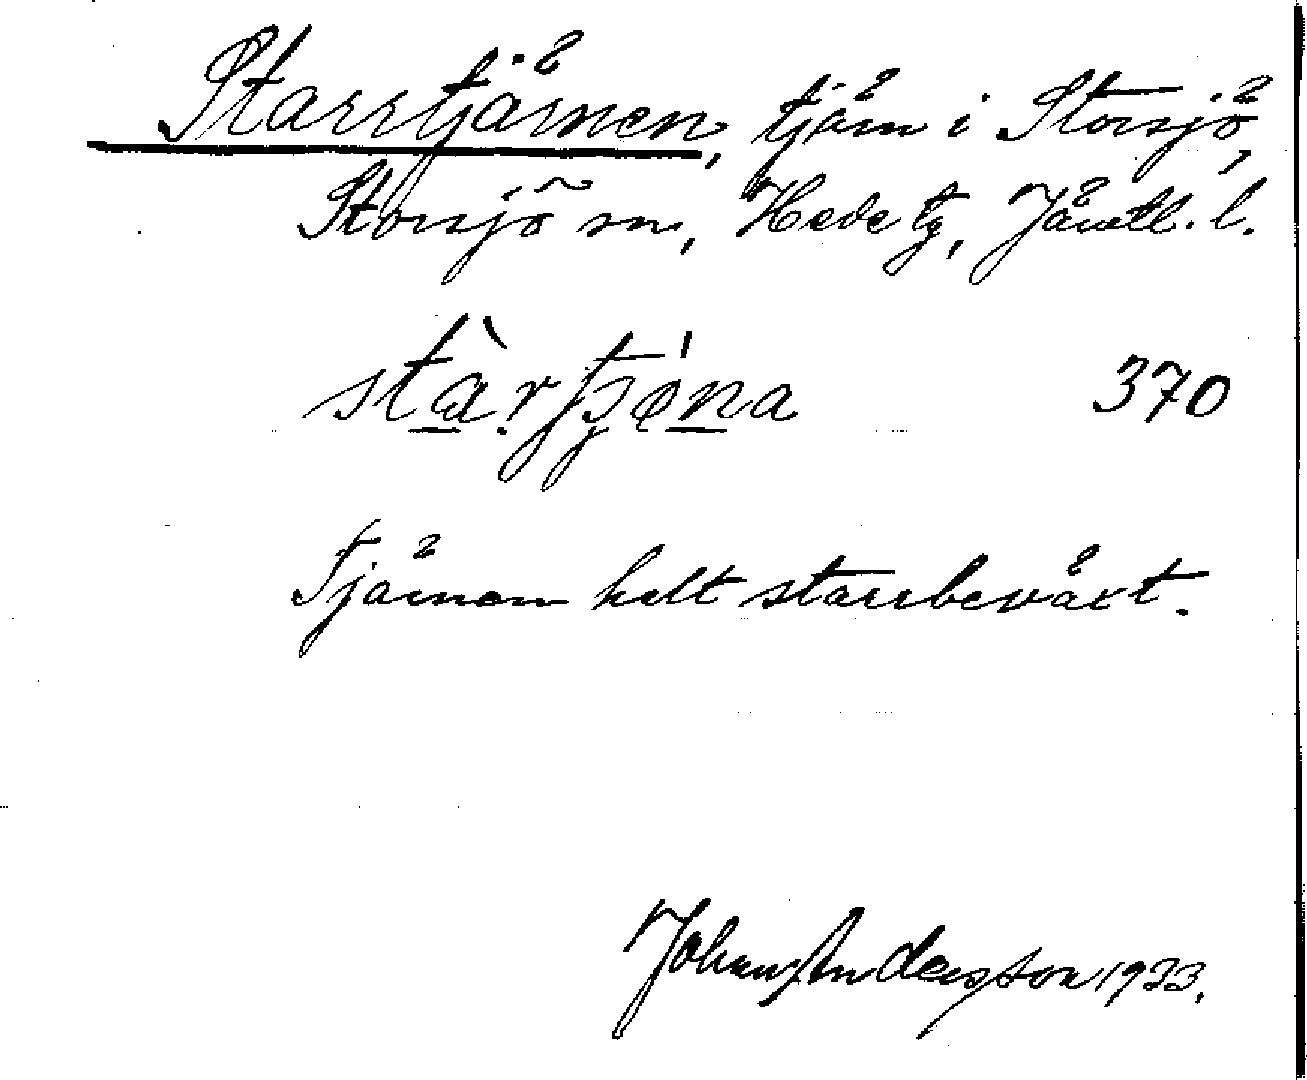 Starrtjärnen, tjärn i Storsjö,
Storsjö sn, Hede tg, Jämtl. l.
370
Tjärnen helt starrbeväxt.
Johan Andersson 1933.